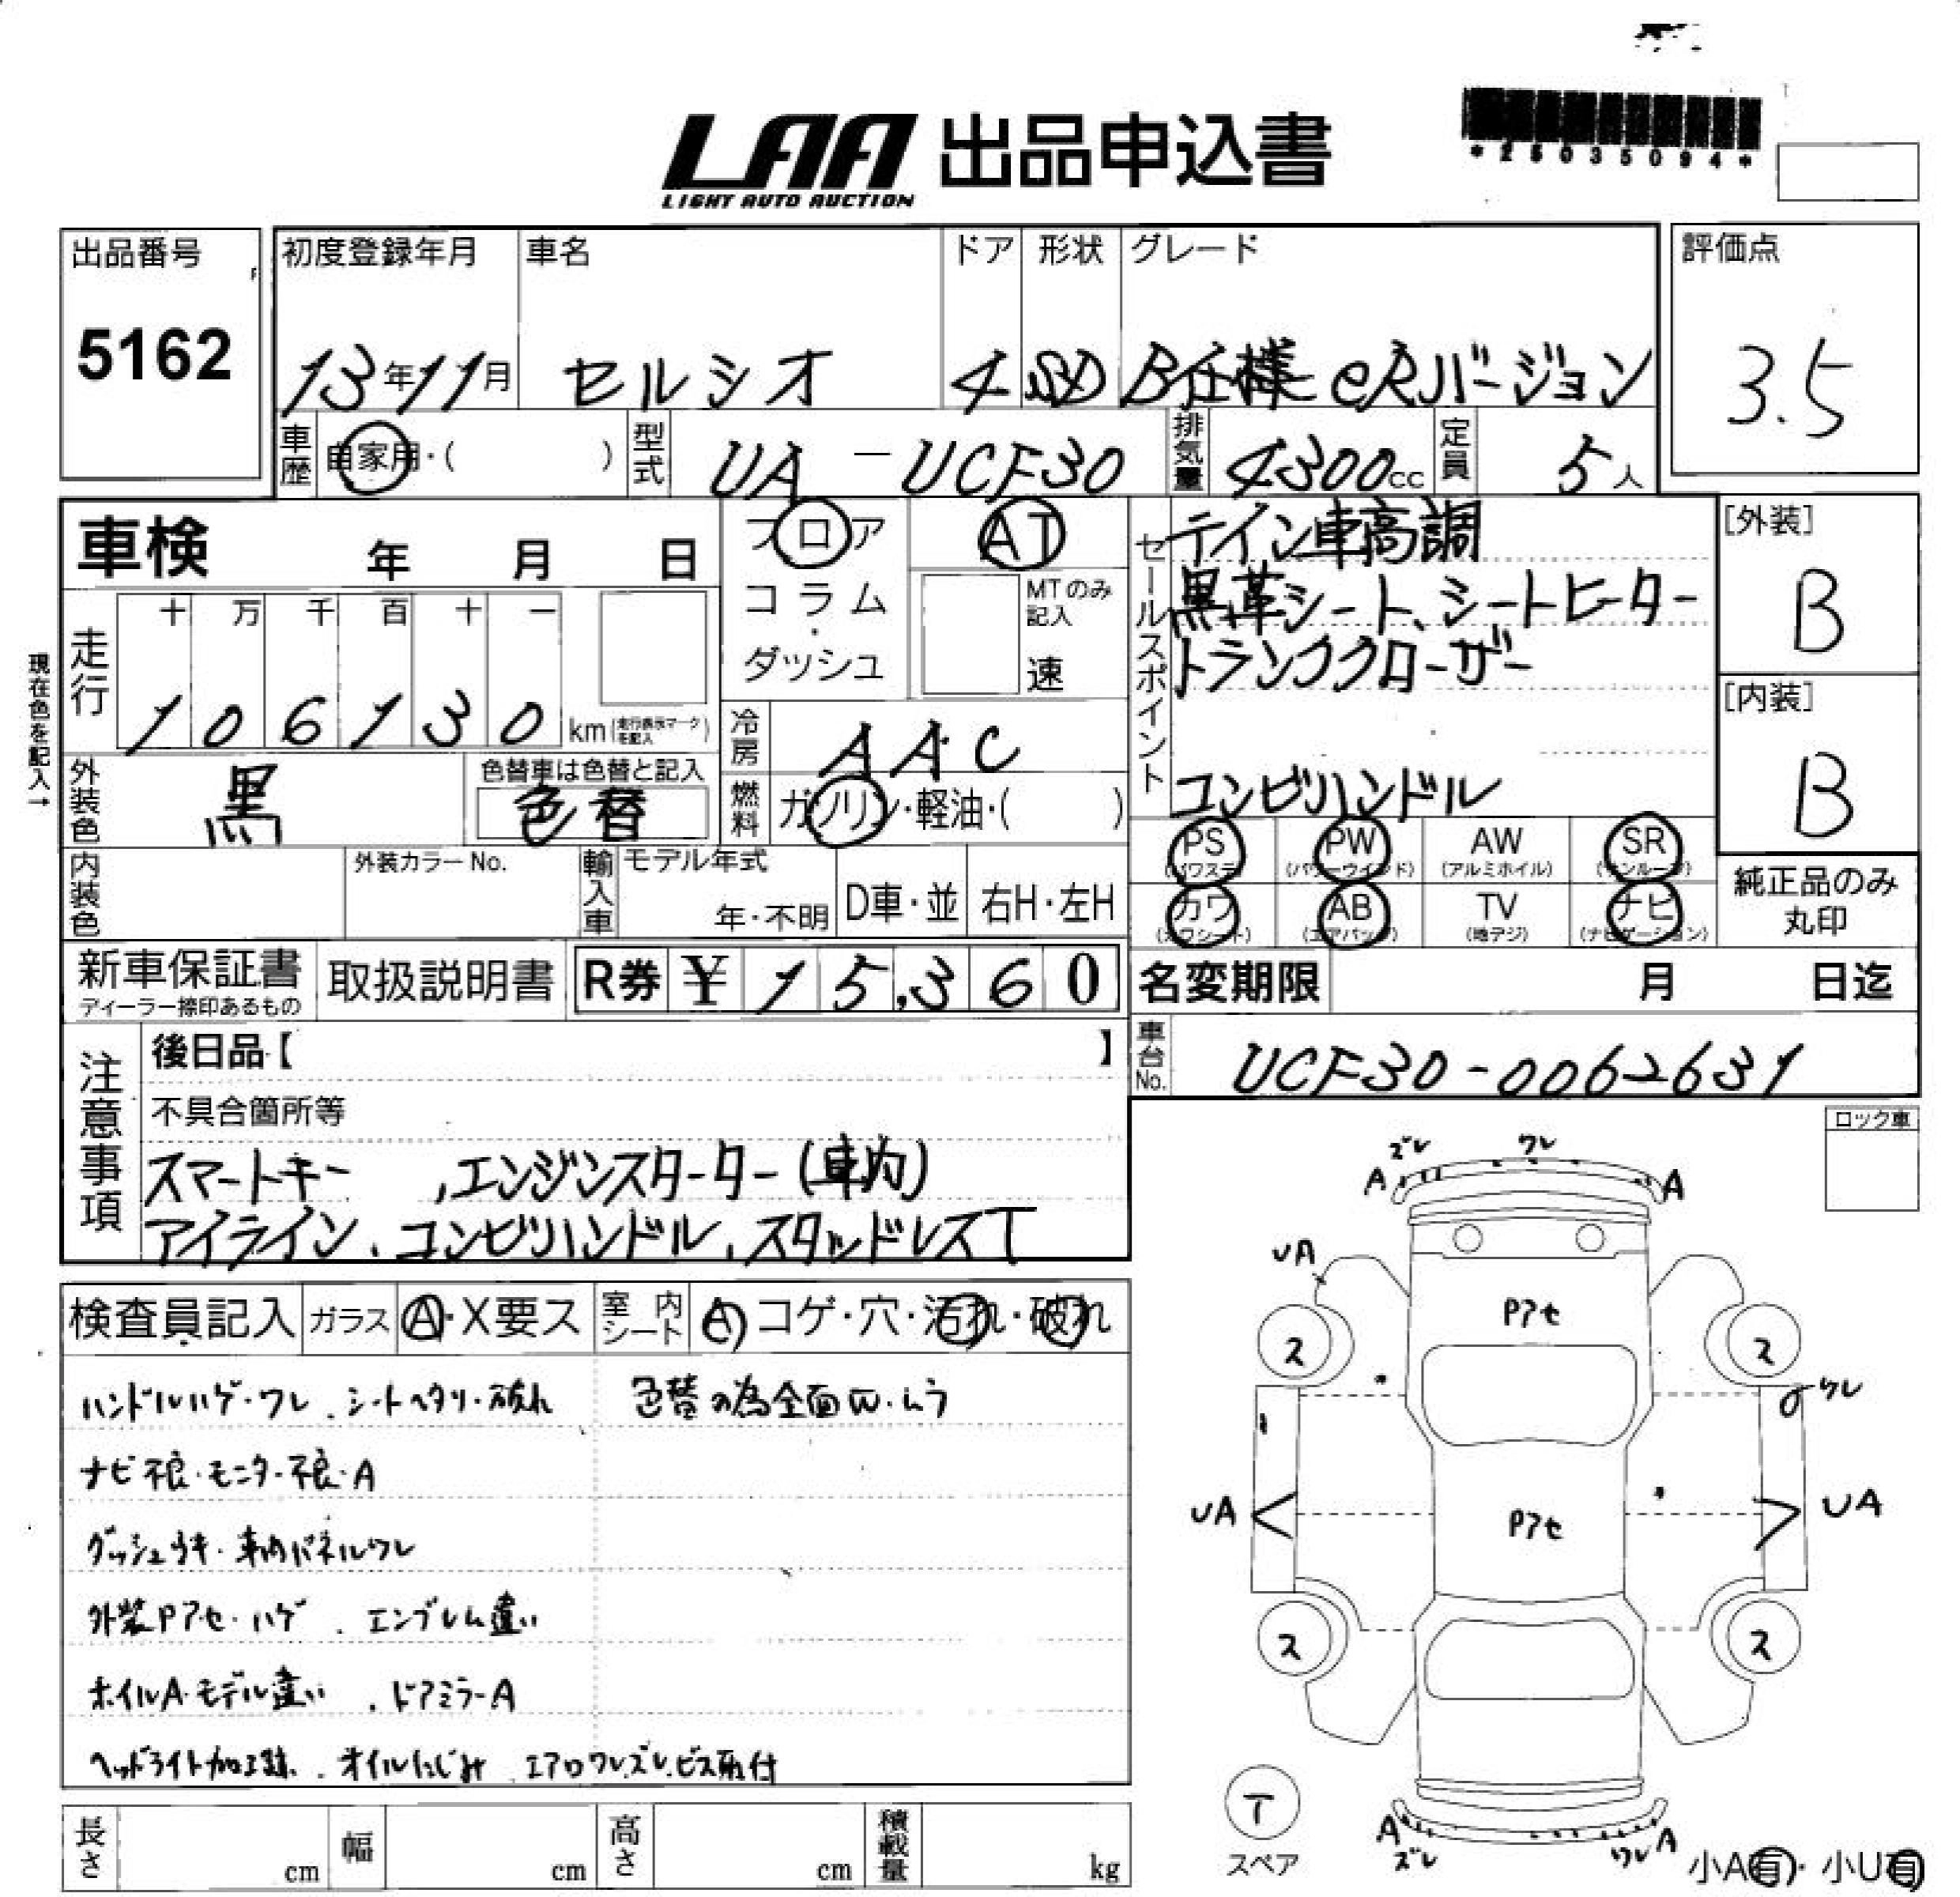 LAA 出品申込書
LIGHT AUTO AUCTION
*25035094*
出品番号
5162
初度登録年月
13年11月
車名
セルシオ
ドア
4
形状
SD
グレード
B仕様 eRバージョン
評価点
3.5
車歴
自家用・( )
型式
UA - UCF30
排気量
4300cc
定員
5人
車検 年 月 日
フロア
コラム・ダッシュ
AT
MTのみ記入
速
セールスポイント
テイン車高調
黒革シート、シートヒーター
トランククローザー
コンビハンドル
[外装]
B
[内装]
B
現在色を記入→
走行
十 万 千 百 十 一
1 0 6 1 3 0 km (走行表示マークを記入)
冷房
AAC
外装色
黒
色替車は色替と記入
色替
燃料
ガソリン・軽油・( )
PS PW AW SR
(パワステ) (パワーウィンド) (アルミホイル) (サンルーフ)
カワ AB TV ナビ
(カワシート) (エアバッグ) (地デジ) (ナビゲーション)
純正品のみ
丸印
内装色
外装カラーNo.
輸入車
モデル年式
年・不明
D車・並
右H・左H
新車保証書
ディーラー捺印あるもの
取扱説明書
R券 ¥ 15,360
名変期限 月 日迄
車台No.
UCF30-0062631
注意事項
後日品【 】
不具合箇所等
スマートキー ,エンジンスターター(車内)
アイライン、コンビハンドル、スタッドレスT
ロック車
検査員記入
ガラス
A・X要ス
室内シート
A コゲ・穴・汚れ・破れ
ハンドルハゲ・ワレ、シートヘタリ・破れ
色替の為全面W・ムラ
ナビ不良・モニター不良・A
ダッシュウキ・車内パネルワレ
外装Pアセ・ハゲ 、エンブレム違い
ホイルA・モデル違い 、ドアミラーA
ヘッドライト加工跡、オイルにじみ、エアロワレ.ズレ.ビス取付
ズレ ワレ
A A
UA
Pアセ
ス ス
ワレ
UA UA
Pアセ
ス ス
T
スペア
A A
ズレ ワレ
小A有・小U有
長さ cm
幅 cm
高さ cm
積載量 kg